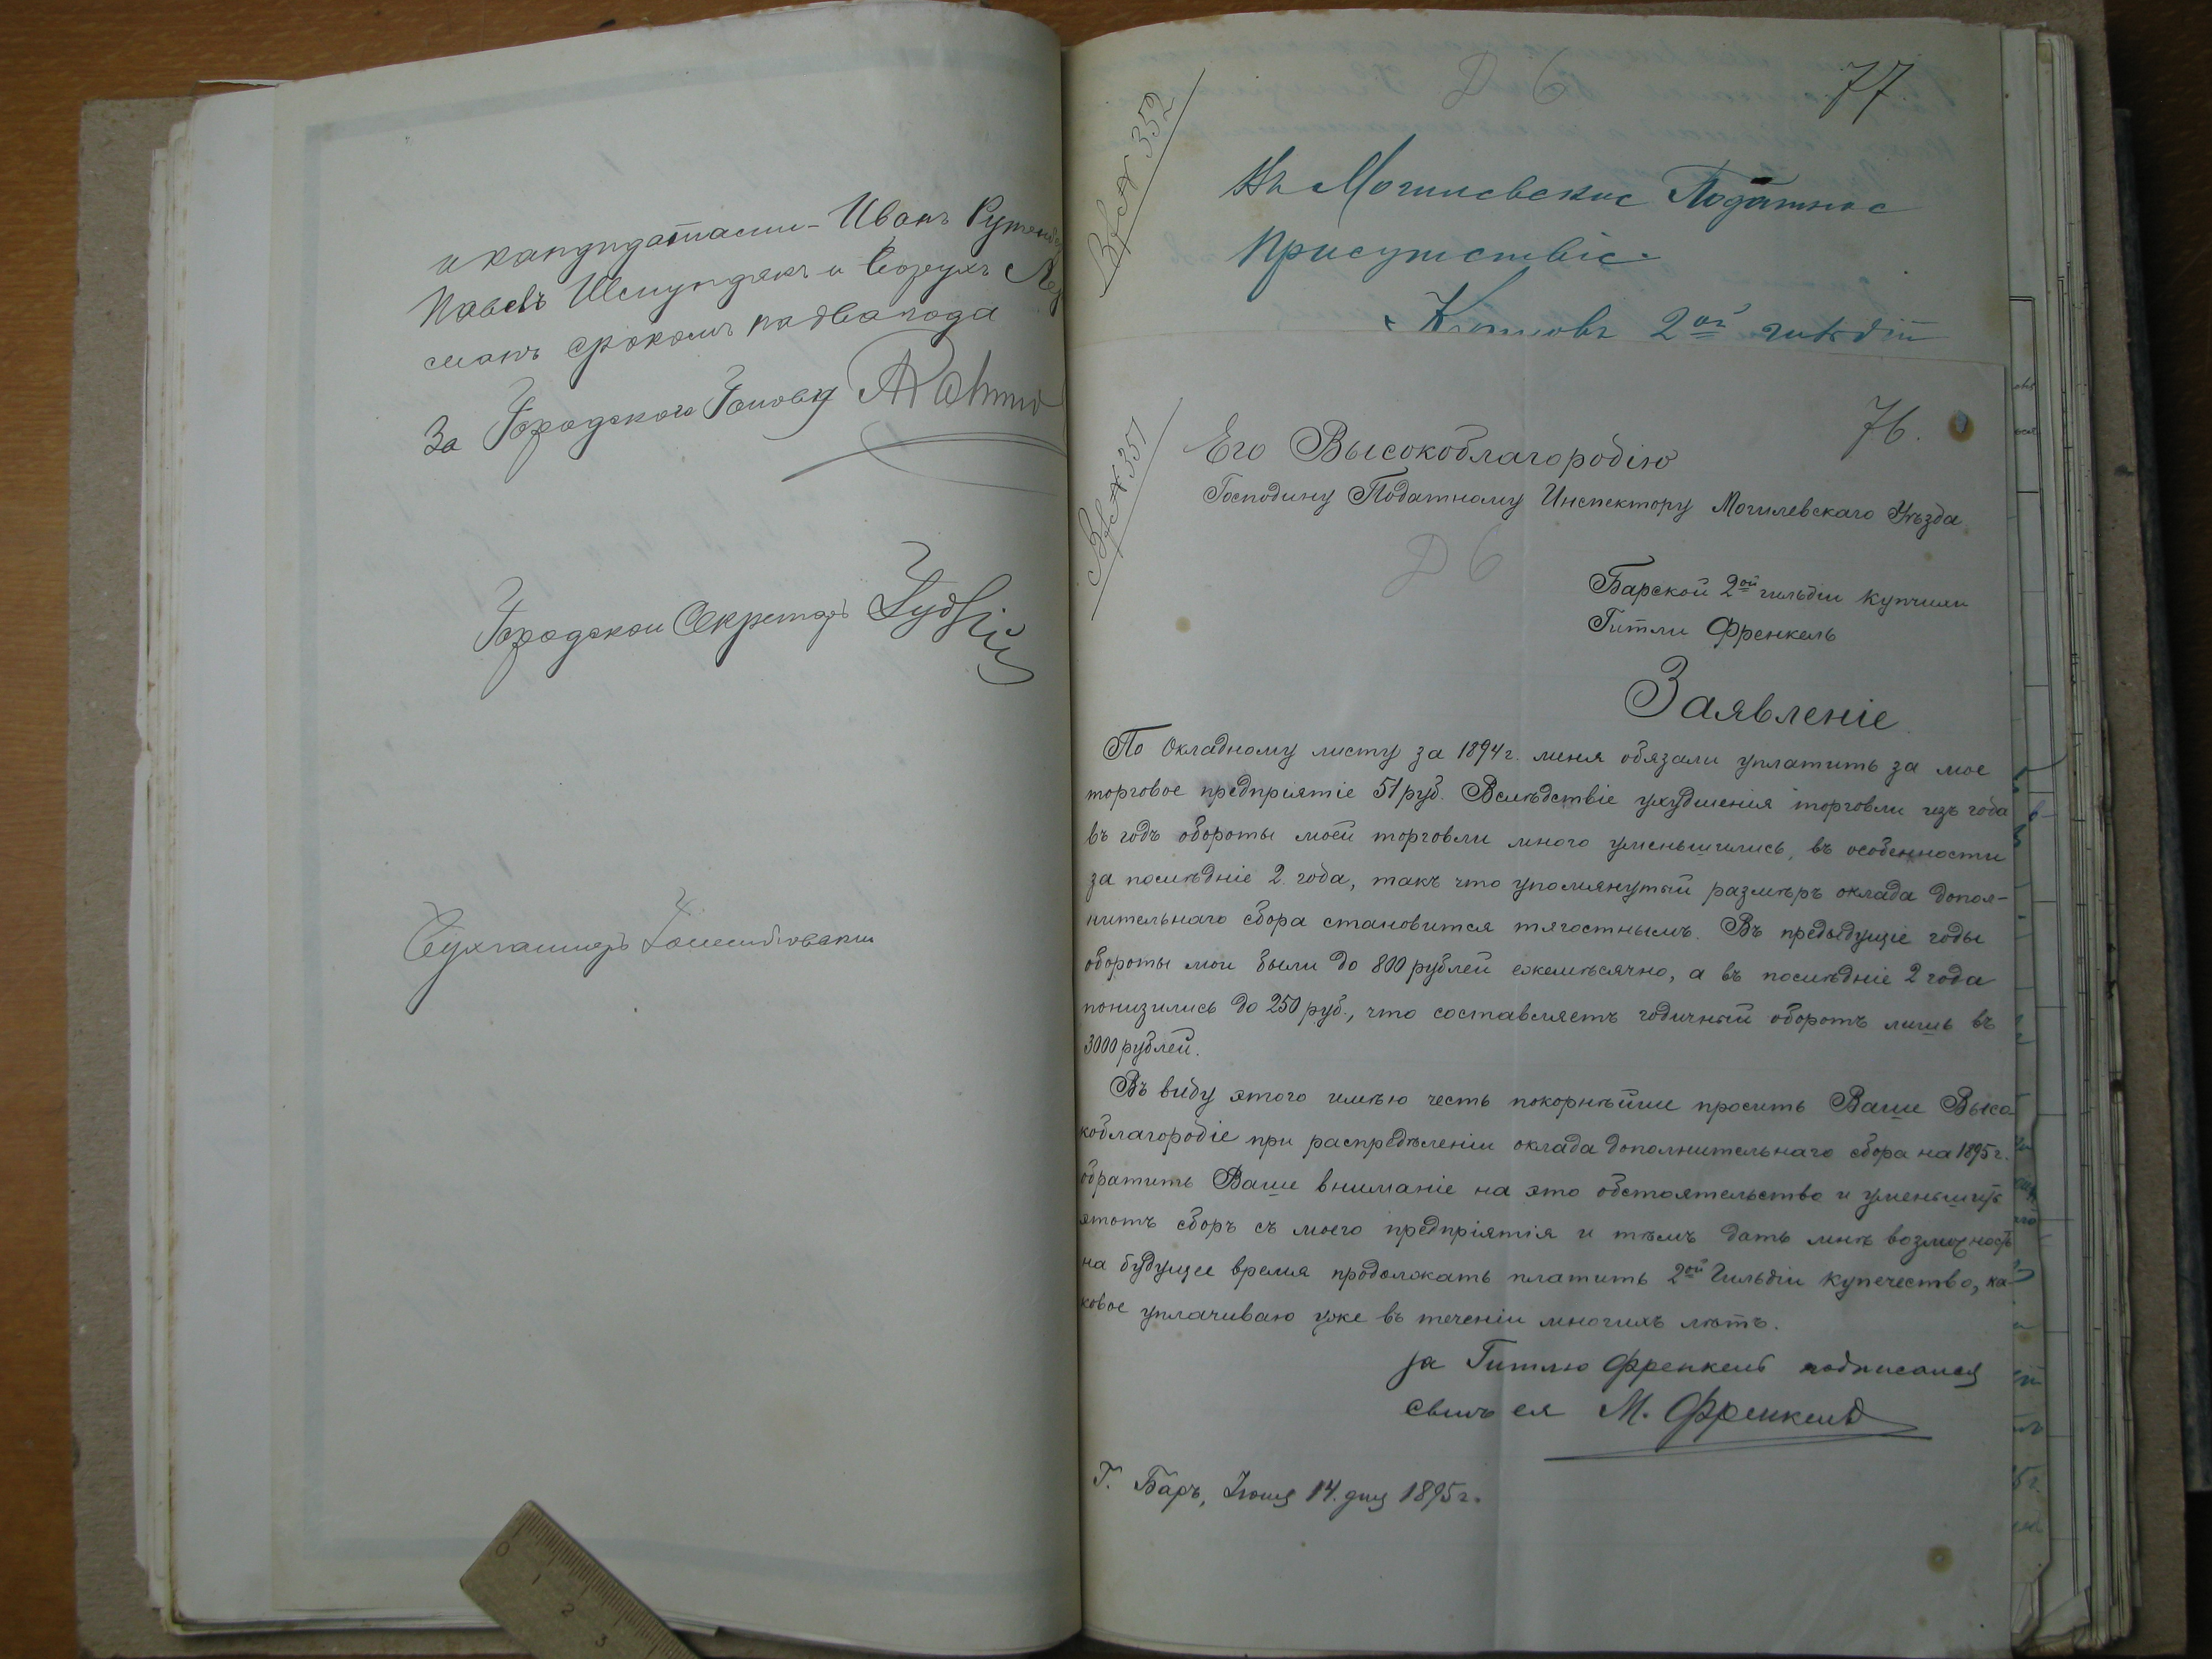 и кандидатами - Иванъ
Павелъ Шемундякъ и
сроком на два года
За Городского Голову
Городской Секретарь
Бухгалтеръ
Вх № 352
Д 6
77.
Въ Могилевское Податное
Присутствіе.
2ой гильдіи
76.
Вх № 351
Его Высокоблагородію
Господину Податному Инспектору Могилевскаго Уѣзда
Д 6
Барской 2ой гильдіи купчихи
Гитли Френкель
Заявленіе
По Окладному листу за 1894 г. меня обязали уплатить за мое
торговое предпріятіе 51 руб. Вслѣдствіе ухудшенія торговли изъ года
въ годъ обороты моей торговли много уменьшились, въ особенности
за послѣдніе 2 года, такъ что упомянутый размѣръ оклада допол-
нительнаго сбора становится тягостнымъ. Въ предыдущіе годы
обороты мои были до 800 рублей ежемѣсячно, а въ послѣдніе 2 года
понизились до 250 руб., что составляетъ годичный оборотъ лишь въ
3000 рублей.
Въ виду этого имѣю честь покорнѣйше просить Ваше Высо
коблагородіе при распредѣленіи оклада дополнительнаго сбора на 1895 г.
обратить Ваше вниманіе на это обстоятельство и уменьшить
этотъ сборъ съ моего предпріятія и тѣмъ дать мнѣ возможность
на будущее время продолжать платить 2ой Гильдіи купечество, ка-
ковое уплачиваю уже въ теченіи многихъ лѣтъ.
за Гитлю Френкель подписался
сынъ ея М. Френкель
Г. Баръ, Іюня 14 дня 1895 г.
0
1
2
3